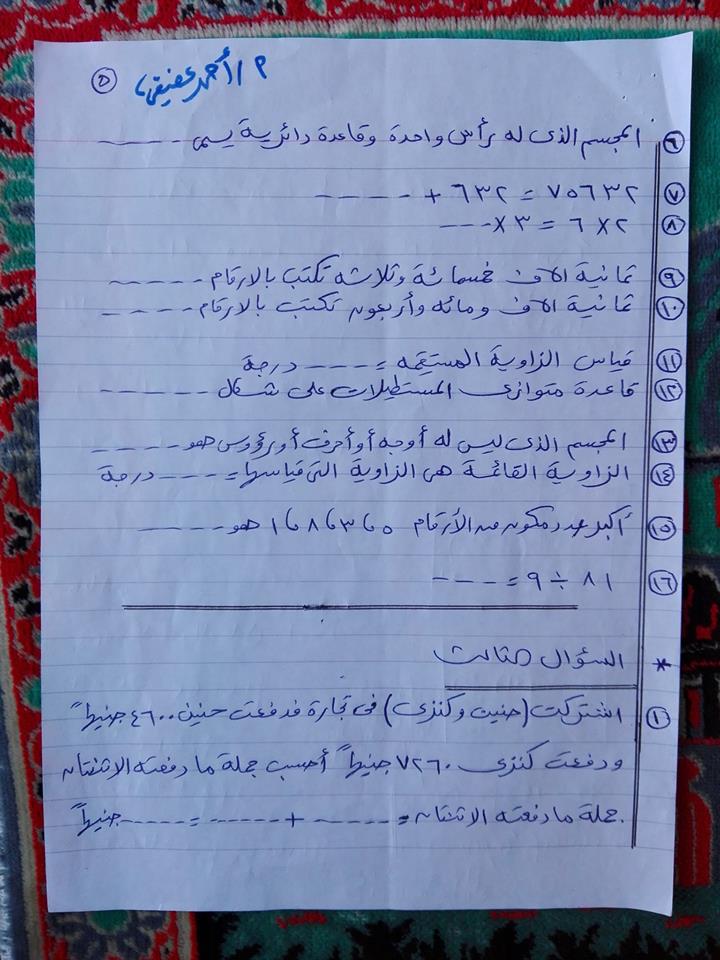 م / أحمد عفيفى ٥
٦ المجسم الذى له رأس واحدة وقاعدة دائرية يسمى -----
٧ ٧٥٦٣٢ = ٦٣٢ + -----
٨ ٦ × ٢ = ٣ × ----
٩ ثمانية الاف خمسمائة وثلاثه تكتب بالارقام -----
١٠ ثمانية الاف ومائه وأربعون تكتب بالارقام ----
١١ قياس الزاوية المستقيمه = ---- درجة
١٢ قاعدة متوازى المستطيلات على شكل -----
١٣ المجسم الذى ليس له أوجه أو أحرف أو رؤوس هو ----
١٤ الزاوية القائمة هى الزاوية التى قياسها = ---- درجة
١٥ أكبر عدد مكون من الأرقام ٥ ، ٣ ، ٨ ، ١ هو ----
١٦ ٨١ ÷ ٩ = ----
* السؤال الثالث
١ اشتركت (حنين وكنزى) فى تجارة فدفعت حنين ٤٦٠٠ جنيهاً
ودفعت كنزى ٧٢٦٠ جنيهاً أحسب جملة ما دفعته الاثنتان
جملة ما دفعته الاثنتان = ----- + ----- = ----- جنيهاً